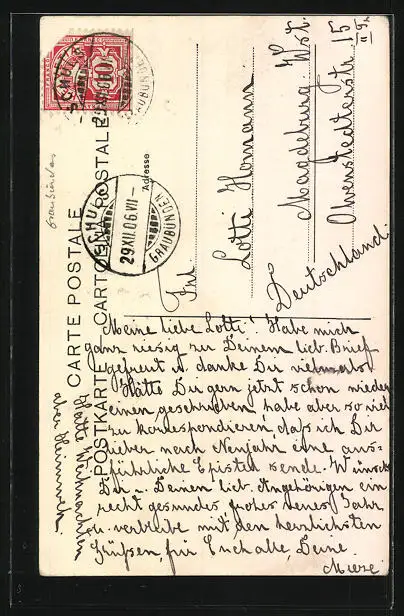 CARTE POSTALE
POSTKARTE CARTOLINA POSTALE
10
SCHULS
29.XII.06.VII-
GRAUBÜNDEN
Adresse
Graubünden
Frl.
Lotti Homann
Magdeburg. Wst.
Olvenstedterstr. 15
Deutschland.
Meine liebe Lotti! Habe mich
ganz riesig zu Deinem lieb. Brief
gefreut u. danke Dir vielmals.
Hätte Dir gern jetzt schon wieder
einen geschrieben, habe aber so viel
zu korrespondieren, daß ich Dir
lieber nach Neujahr eine aus-
führliche Epistel sende. Wünsche
Dir u. Deinen lieb. Angehörigen ein
recht gesundes, frohes neues Jahr
u. verbleibe mit den herzlichsten
Grüßen, für Euch alle, Deine
Mieze